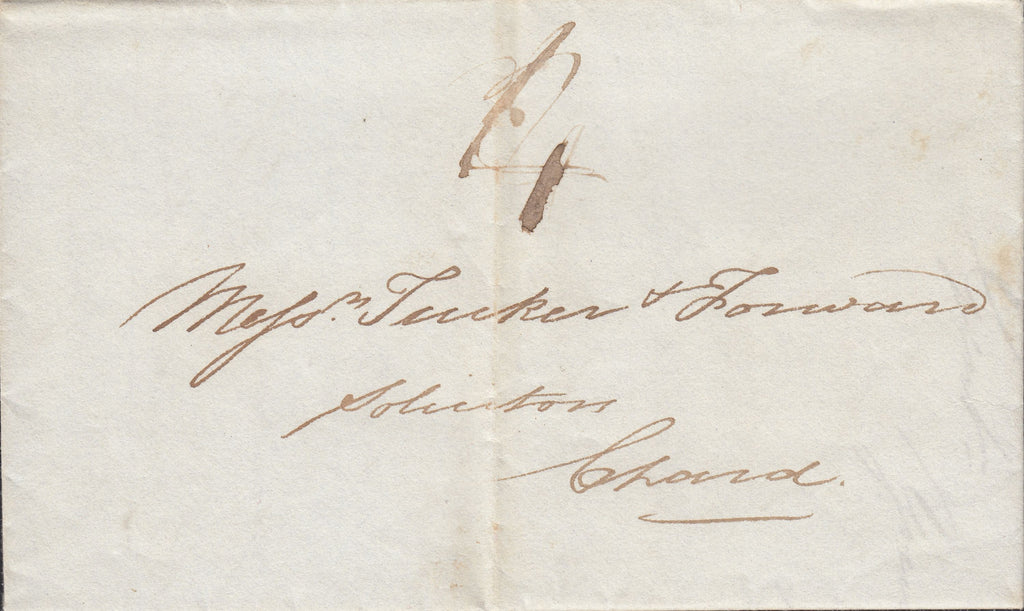 4
Messrs. Tucker & Forward
Solicitors
Chard.